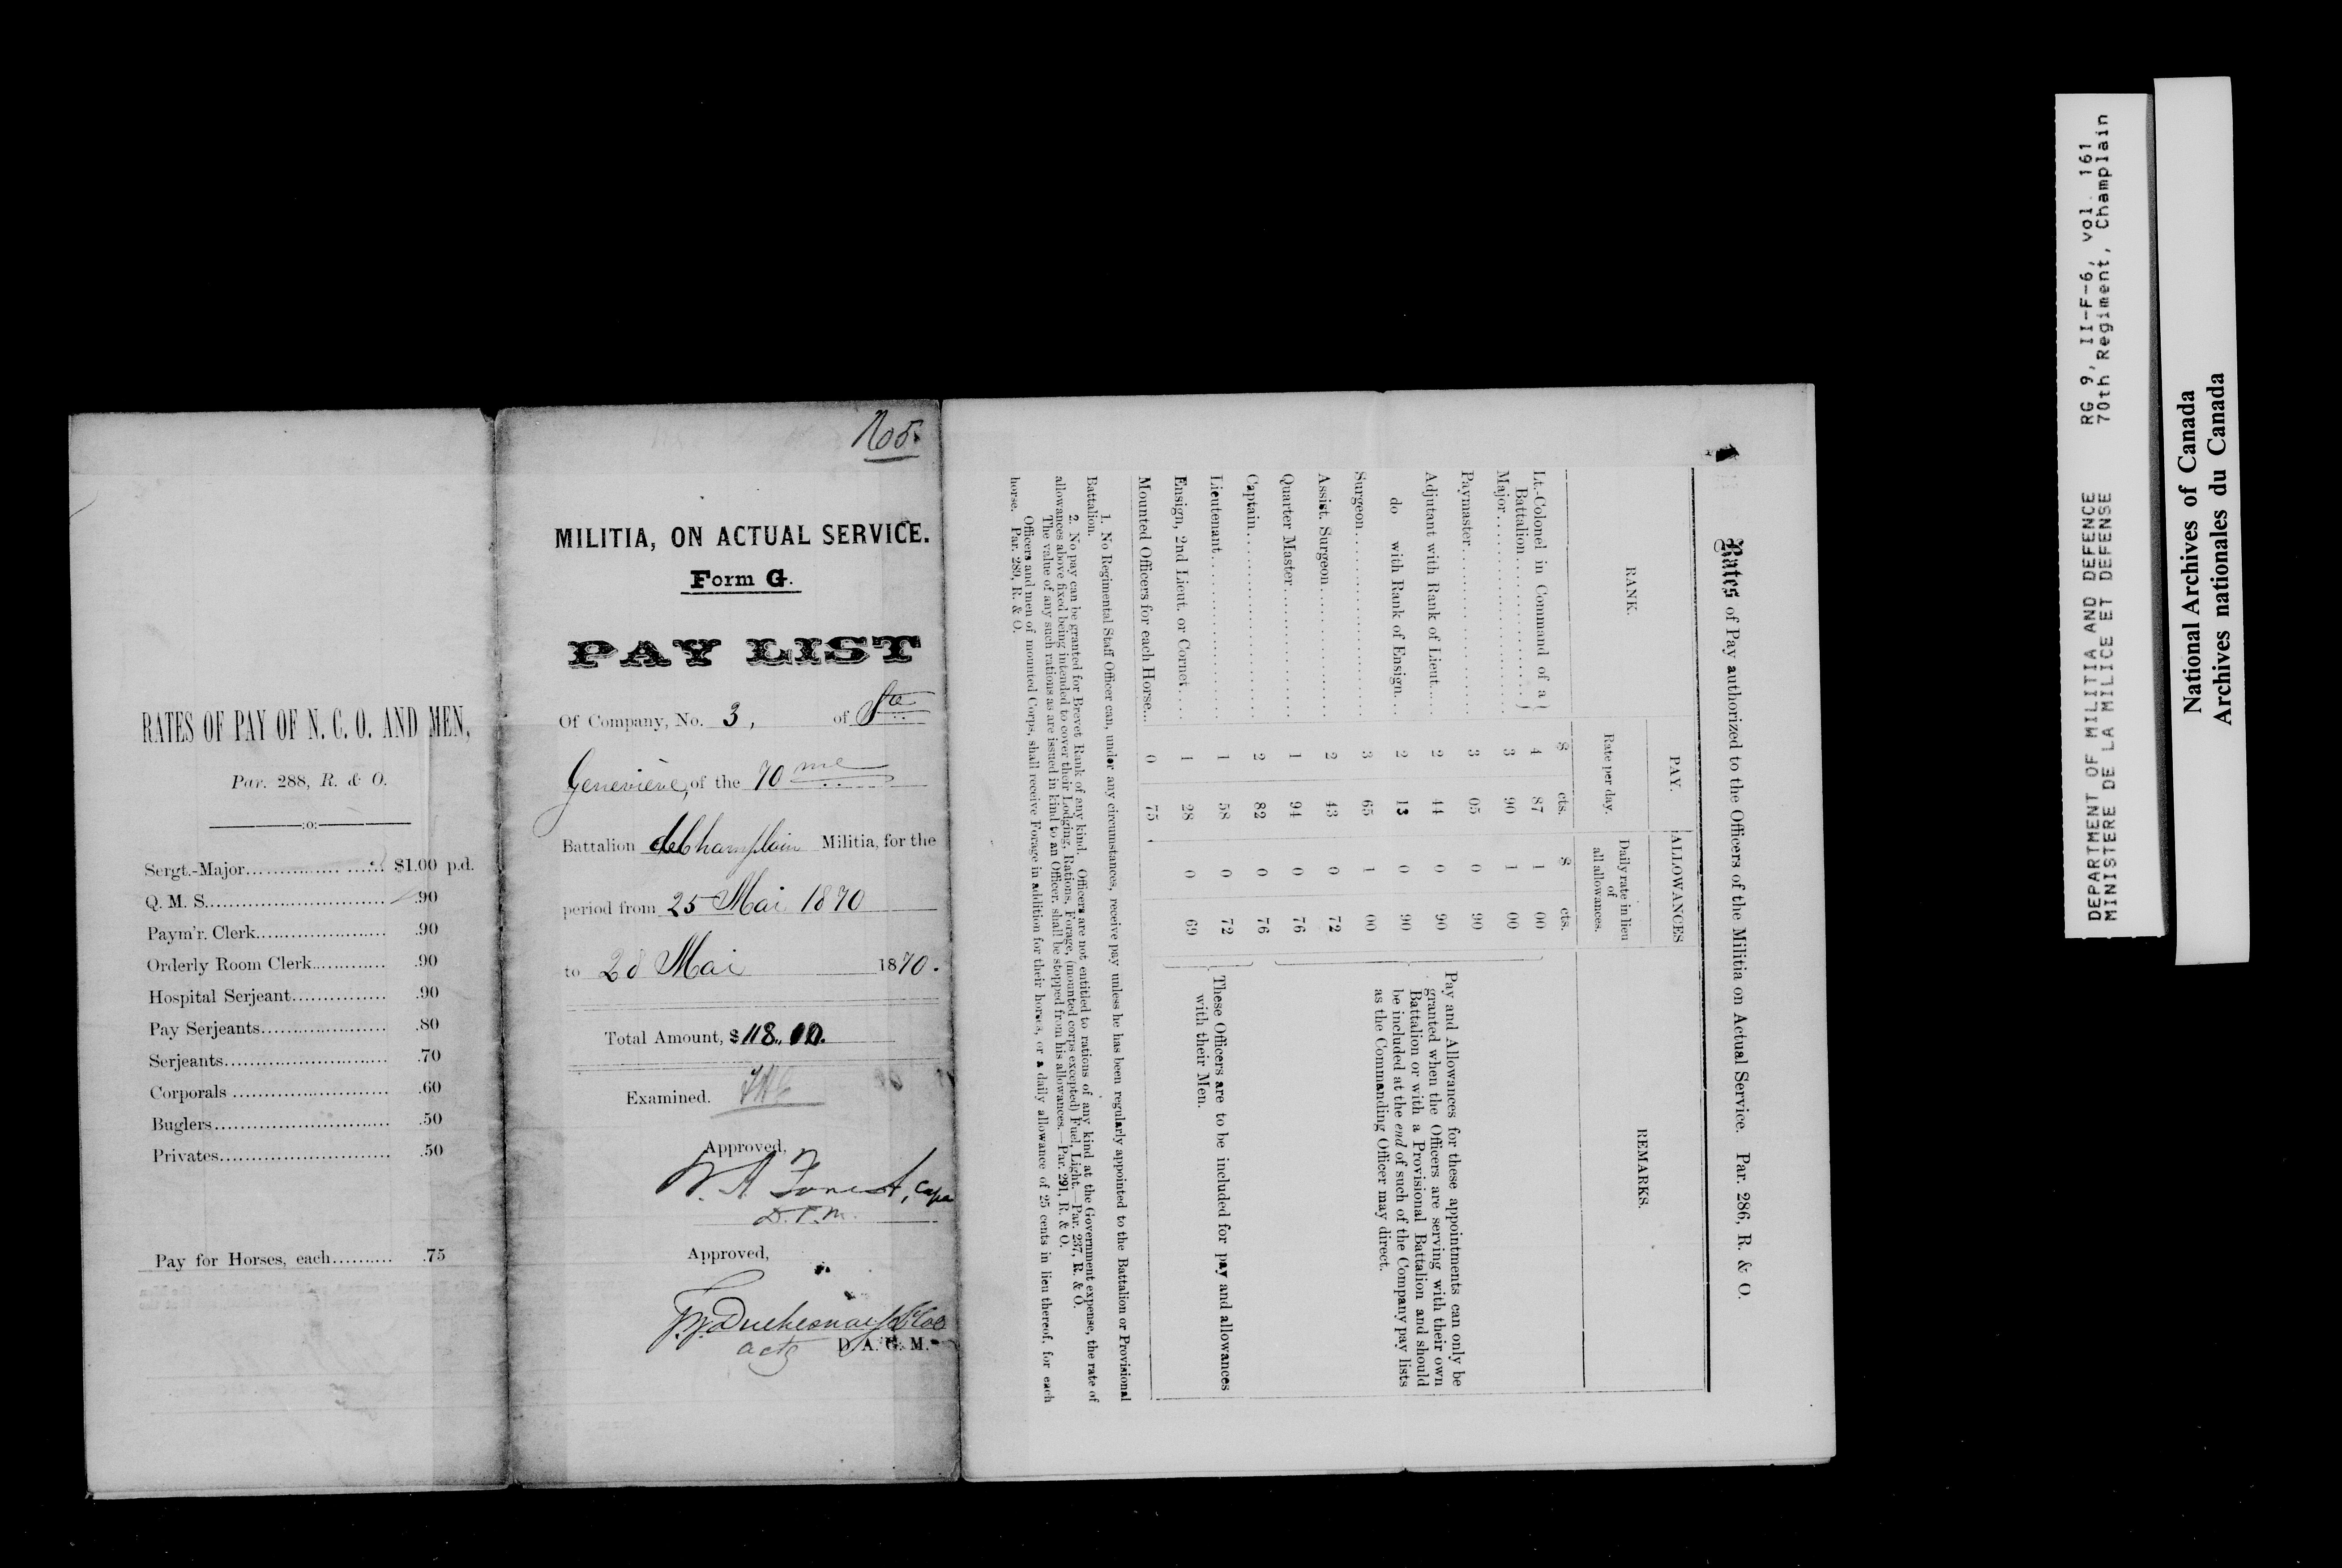 RATES OF PAY OF N. C. O. AND MEN,
Par. 288, R. & O.
:o:
Sergt.-Major........................ $1.00 p.d.
Q. M. S............................. .90
Paym'r. Clerk...................... .90
Orderly Room Clerk............ .90
Hospital Serjeant............... .90
Pay Serjeants..................... .80
Serjeants........................... .70
Corporals ......................... .60
Buglers............................. .50
Privates............................ .50
Pay for Horses, each.......... .75
No 5.
MILITIA, ON ACTUAL SERVICE.
Form G.
PAY LIST
Of Company, No. 3, of Ste
Geneviève, of the 70me
Battalion de Champlain Militia, for the
period from 25 Mai 1870
to 28 Mai 1870.
Total Amount, $118.00.
Examined.
Approved,
D.P.M.
Approved,
Duchesnay Lt Col
actg D. A. G. M.
Rates of Pay authorized to the Officers of the Militia on Actual Service. Par. 286, R. & O.
RANK. PAY. ALLOWANCES REMARKS.
Rate per day. Daily rate in lieu of all allowances.
$ cts. $ cts.
Lt.-Colonel in Command of a Battalion............... 4 87 1 00
Major............................ 3 90 1 00
Paymaster....................... 3 05 0 90
Adjutant with Rank of Lieut..... 2 44 0 90
do with Rank of Ensign... 2 13 0 90
Surgeon......................... 3 65 1 00
Assist. Surgeon................. 2 43 0 72
Quarter Master................. 1 94 0 76
Captain......................... 2 82 0 76
Lieutenant...................... 1 58 0 72
Ensign, 2nd Lieut. or Cornet.... 1 28 0 69
Mounted Officers for each Horse... 0 75
Pay and Allowances for these appointments can only be
granted when the Officers are serving with their own
Battalion or with a Provisional Battalion and should
be included at the end of such of the Company pay lists
as the Commanding Officer may direct.
These Officers are to be included for pay and allowances
with their Men.
1. No Regimental Staff Officer can, under any circumstances, receive pay unless he has been regularly appointed to the Battalion or Provisional
Battalion.
2. No pay can be granted for Brevet Rank of any kind. Officers are not entitled to rations of any kind at the Government expense, the rate of
allowances above fixed being intended to cover their Lodging, Rations, Forage, (mounted corps excepted) Fuel, Light.—Par. 237, R. & O.
The value of any such rations as are issued in kind to an Officer, shall be stopped from his allowances.—Par. 291, R. & O.
Officers and men of mounted Corps, shall receive Forage in addition for their horses, or a daily allowance of 25 cents in lieu thereof, for each
horse. Par. 289, R. & O.
DEPARTMENT OF MILITIA AND DEFENCE RG 9, II-F-6, vol. 161
MINISTERE DE LA MILICE ET DEFENSE 70th Regiment, Champlain
National Archives of Canada
Archives nationales du Canada